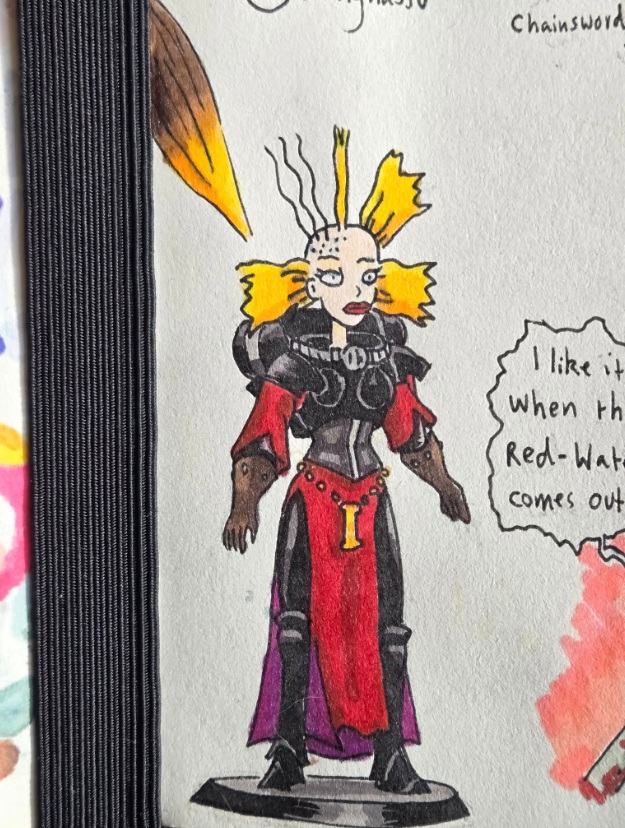 Chainsword
I like it
When th
Red-Wat
comes out
I